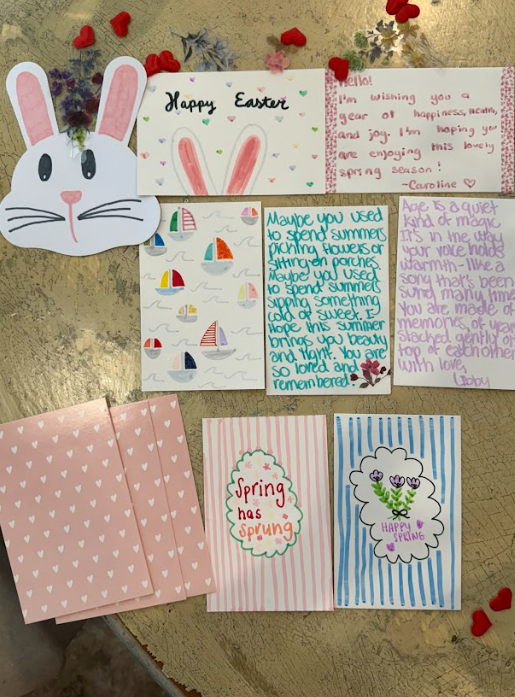 Happy Easter
Hello!
I'm wishing you a
year of happiness, health,
and joy. I'm hoping you
are enjoying this lovely
spring season!
-Caroline ♡
Maybe you used
to spend summers
picking flowers or
sitting on porches.
Maybe you used
to spend summers
sipping something
cold or sweet. I
hope this summer
brings you beauty
and light. You are
so loved and
remembered!
Age is a quiet
kind of magic
It's in the way
your voice holds
warmth-like a
song that's been
sung many times
You are made of
memories, of years
stacked gently on
top of eachother
with love,
Libby
Spring
has
sprung
HAPPY
SPRING